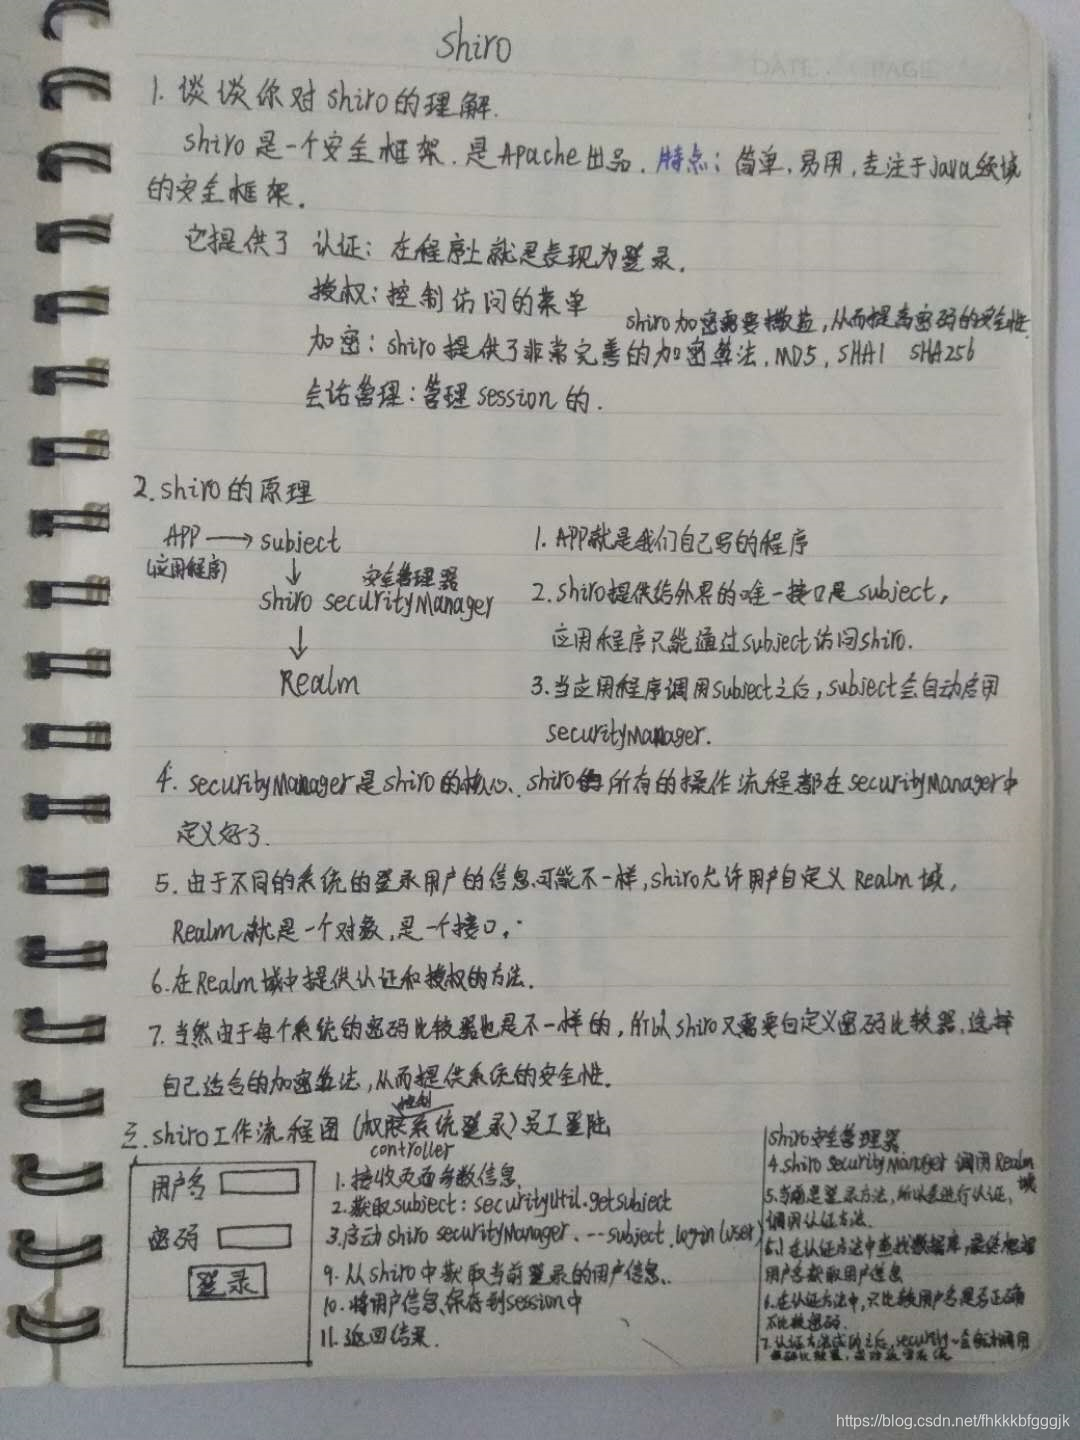 DATE. PAGE
shiro
1. 谈谈你对shiro的理解.
shiro是一个安全框架.是Apache出品. 特点: 简单,易用,专注于Java领域
的安全框架.
它提供了 认证: 在程序上就是表现为登录.
授权: 控制访问的菜单
shiro加密需要撒盐,从而提高密码的安全性.
加密: shiro提供了非常完善的加密算法. MD5, SHA1 SHA256
会话管理: 管理session的.
2. shiro的原理
APP → subject
(应用程序)
↓
安全管理器
shiro securityManager
↓
Realm
1. APP就是我们自己写的程序
2. shiro提供给外界的唯一接口是subject,
应用程序只能通过subject访问shiro.
3. 当应用程序调用subject之后,subject会自动启用
securityManager.
4. securityManager是shiro的核心、shiro的所有的操作流程都在securityManager中
定义好了.
5. 由于不同的系统的登录用户的信息可能不一样,shiro允许用户自定义 Realm域,
Realm就是一个对象,是一个接口.
6. 在Realm域中提供认证和授权的方法.
7. 当然由于每个系统的密码比较器也是不一样的,所以shiro又需要自定义密码比较器,选择
自己适合的加密算法,从而提供系统的安全性.
控制
三. shiro工作流程图 (权限系统登录) 员工登陆
用户名
密码
登录
controller
1. 接收页面参数信息.
2. 获取subject: securityUtil.getSubject
3. 启动 shiro securityManager. --- subject.login(user)
9. 从shiro中获取当前登录的用户信息.
10. 将用户信息保存到session中
11. 返回结果.
shiro安全管理器
4. shiro securityManager 调用Realm
域
5. 当前是登录方法,所以是进行认证,
调用认证方法.
5.1 在认证方法中查找数据库,最终根据
用户名获取用户信息
6. 在认证方法中,只比较用户名是否正确
不比较密码.
7. 认证方法成功之后, security~会自动调用
https://blog.csdn.net/fhkkkbfgggjk